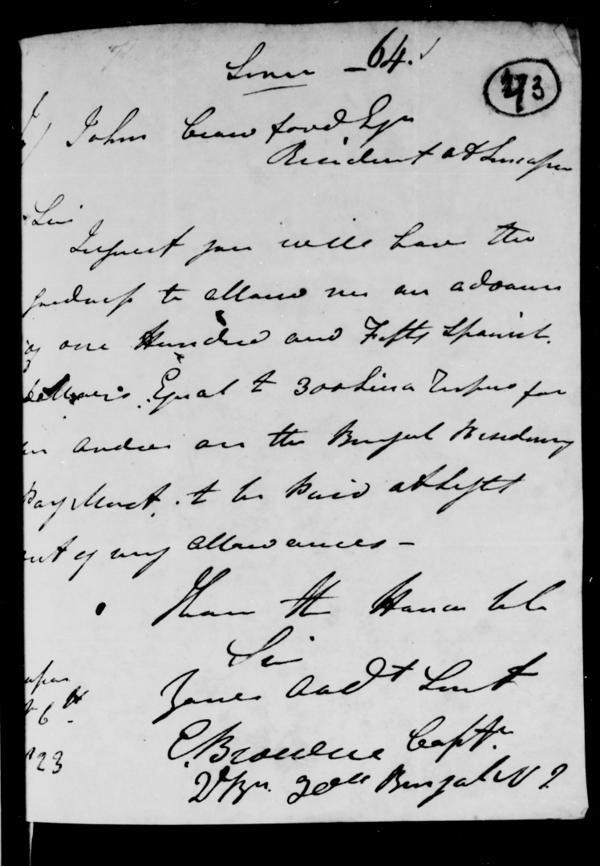 64.
273
John Crawford Esqr
Resident at Singapore
Sir
I request you will have the
goodness to allow me an advance
of one Hundred and Fifty Spanish
Dollars Equal to 300 Sicca Rupees for
an order on the Bengal Presidency
Pay Mast. to be paid at Sight
out of my allowances —
I have the Honor to be
Sir
Your Obdt Servt
E. Browne Captn
20th Bengal N I
6th
23